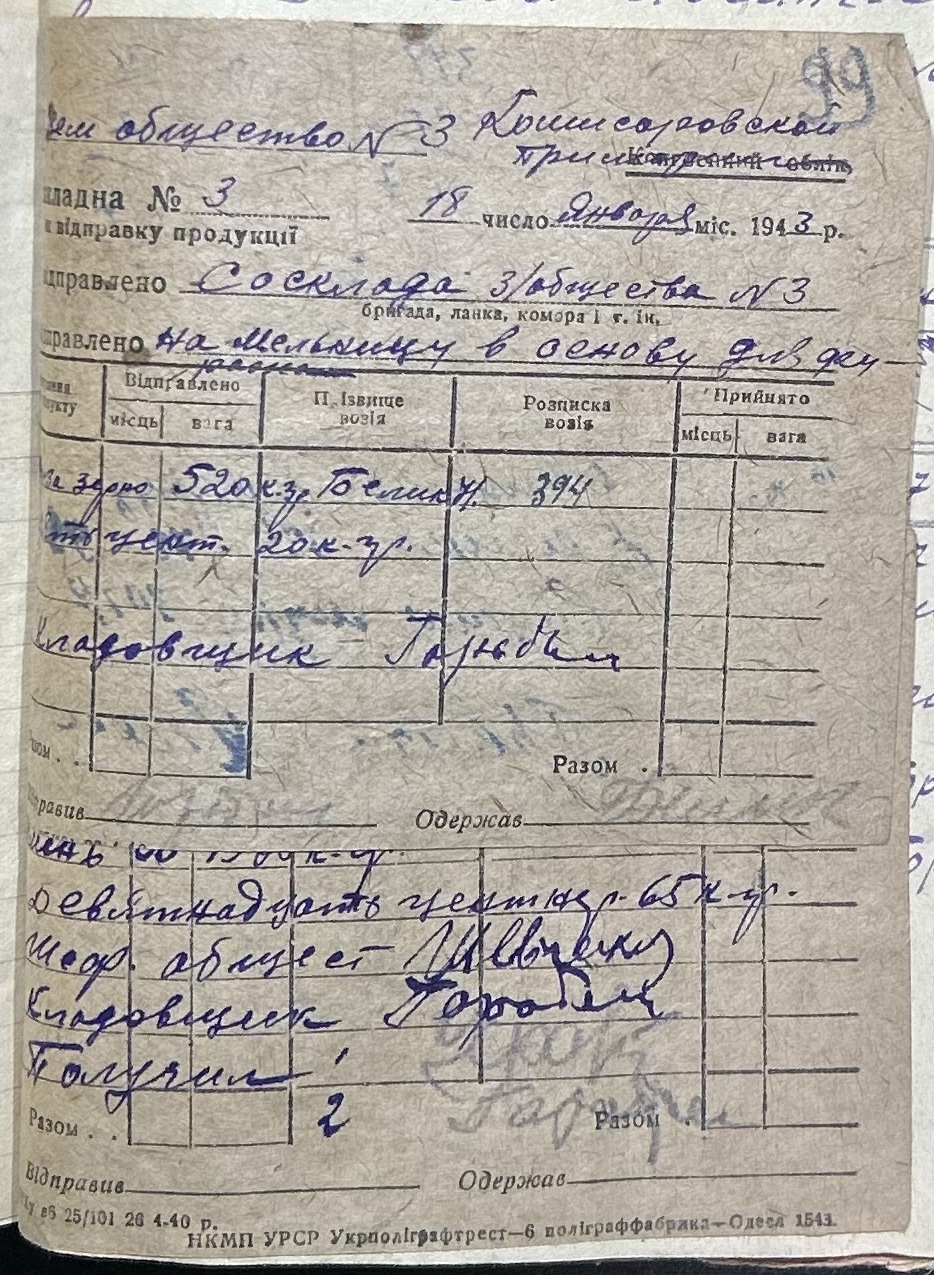 99
Зем общество № 3 Комисаровской
Колгоспний облік
кладна № 3
18 число Января міс. 1943 р.
а відправку продукції
ідправлено Со склада з/общества № 3
бригада, ланка, комора і т. ін.
правлено на мельницу в основу для
Відправлено Прізвище возія Розписка возія Прийнято
укту місць вага місць вага
зерно 520 к.гр. Белик Н. 394
ять цент. 20 к-гр.
Кладовщик Горобец
зом . . Разом .
правив Одержав
Девятнадцать центнер. 65 к-гр.
Шеф. общест
Кладовщик Горобец
Получил
2
Разом . . Разом .
Відправив Одержав
в6 25/101 26 4-40 р.
НКМП УРСР Укрполіграфтрест—6 поліграффабрика—Одеса 1543.